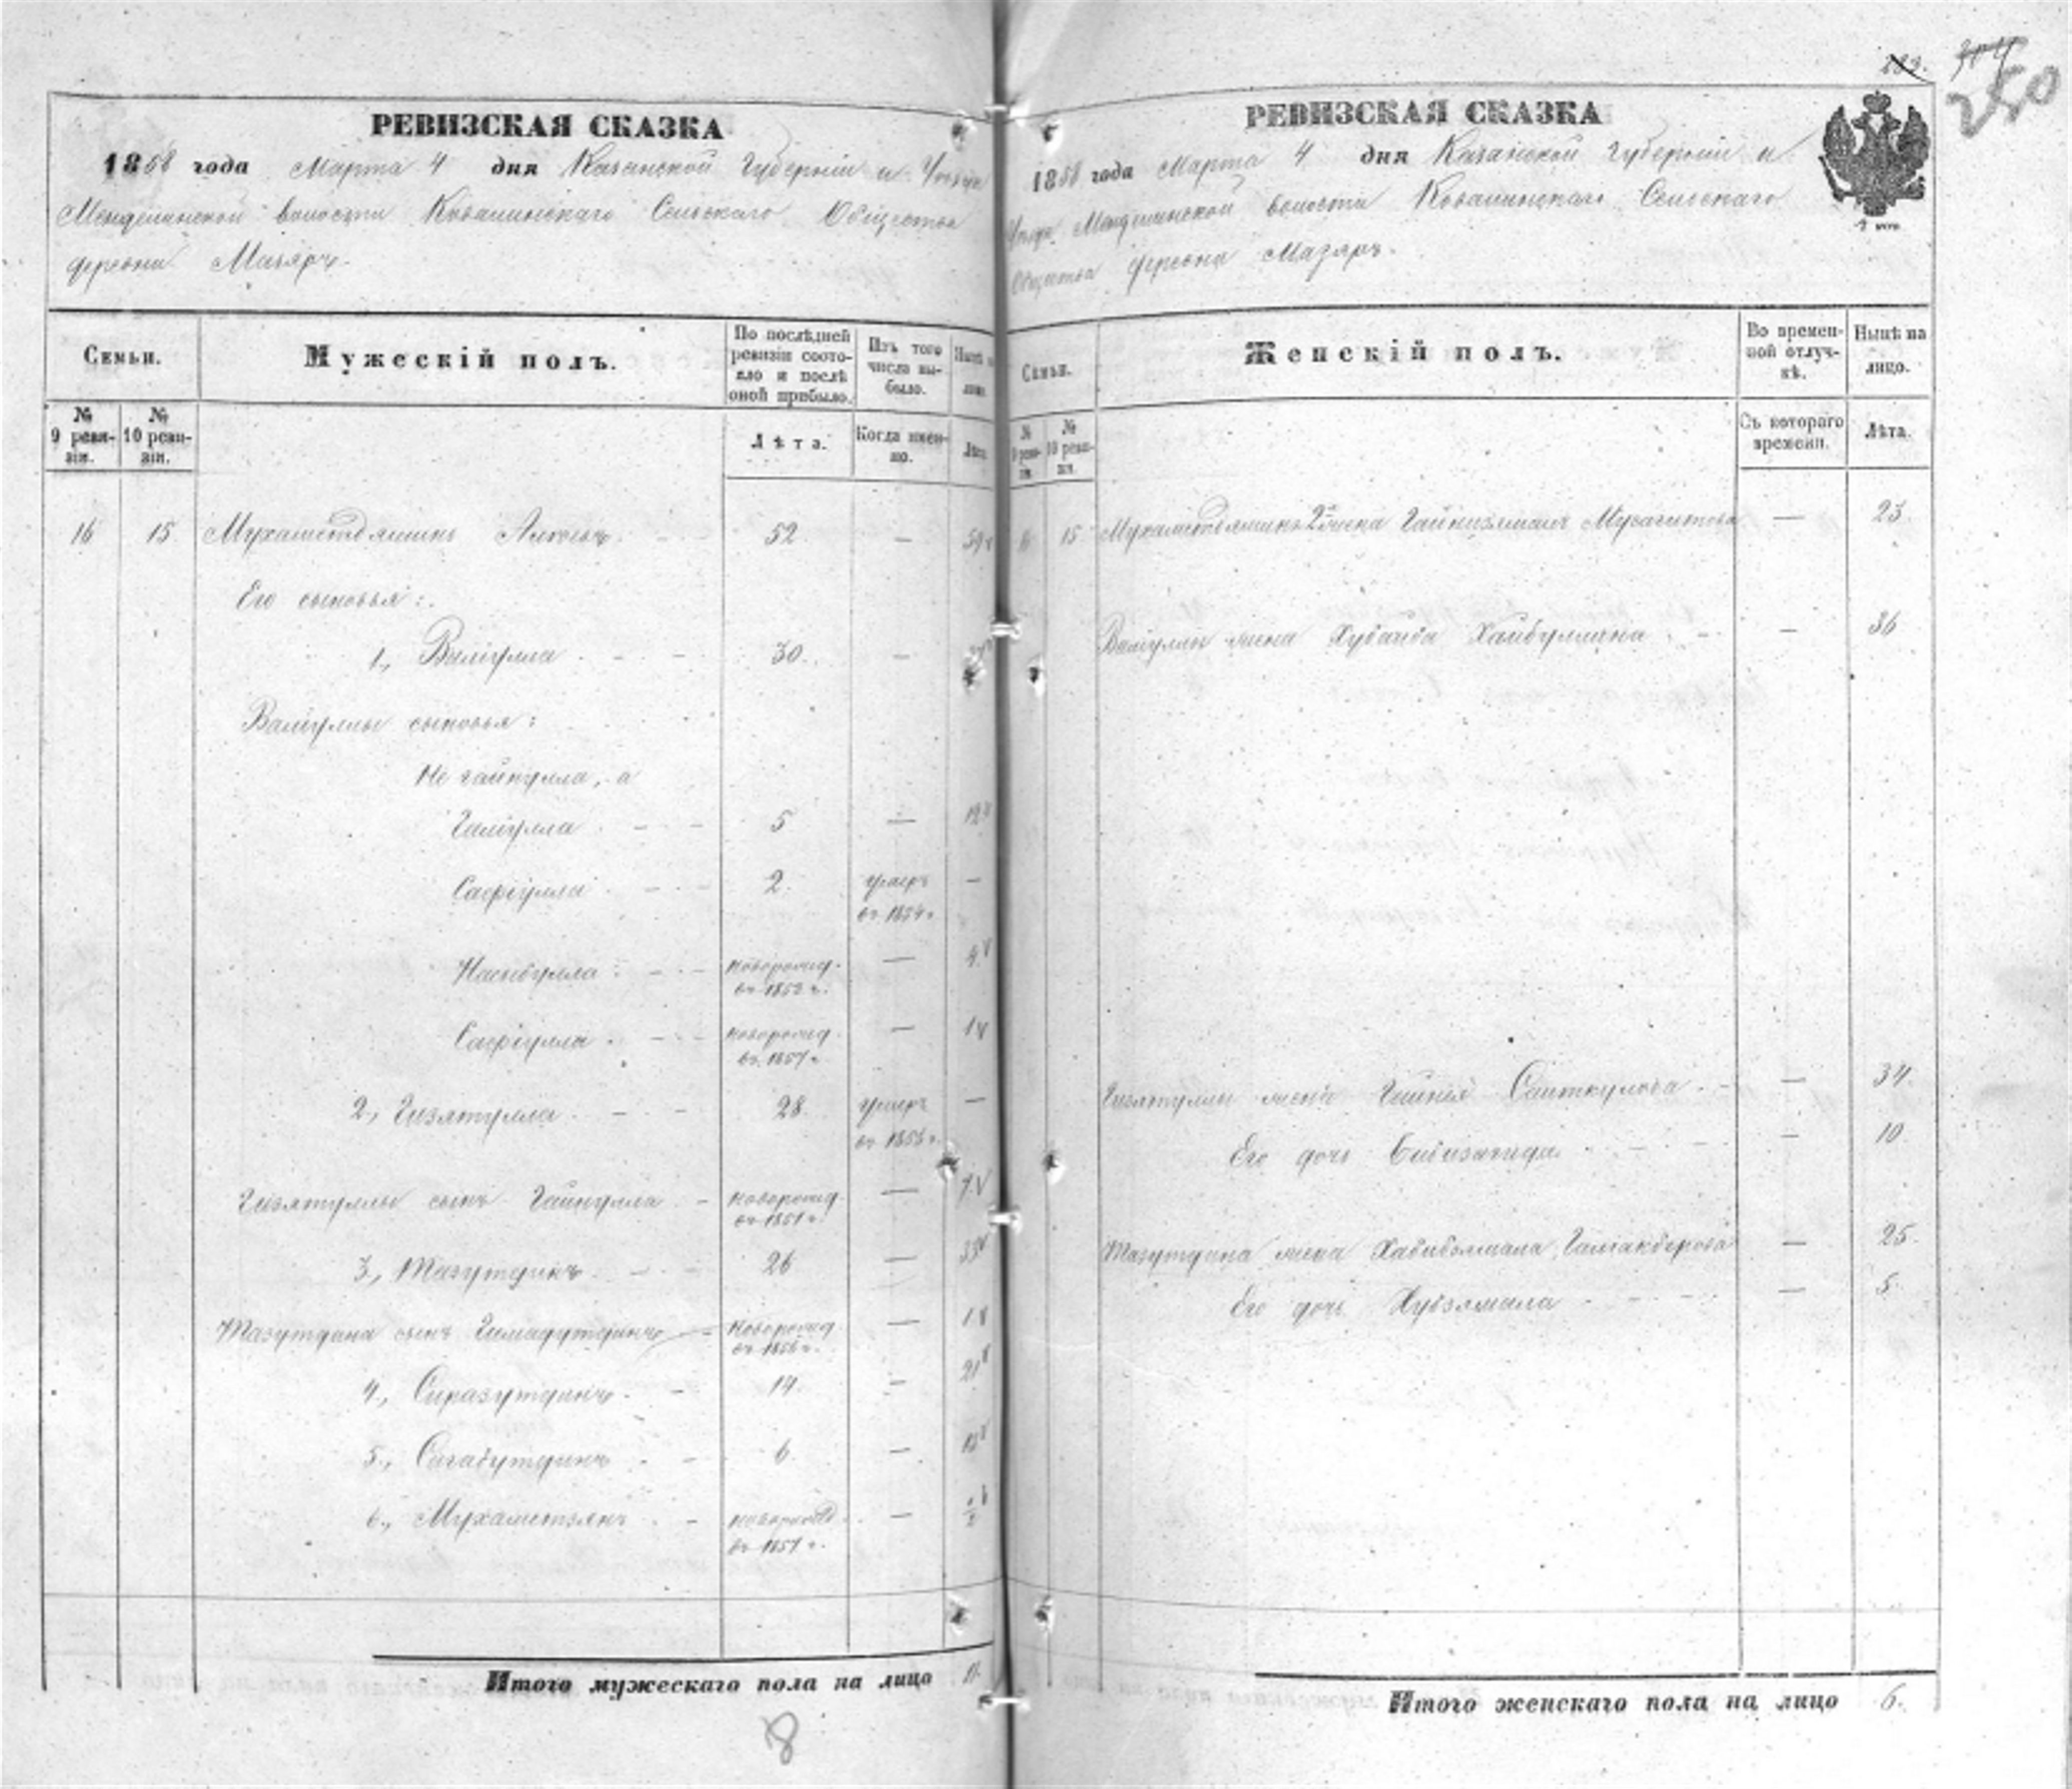 283.
304
250
РЕВИЗСКАЯ СКАЗКА
1858 года Марта 4 дня Казанской Губернiи и Уезда
волости Ковалинскаго Сельскаго Общества
деревни Мазяръ.
Семьи.
Мужескiй полъ.
По послѣдней ревизiи состояло и послѣ оной прибыло.
Изъ того числа выбыло.
Нынѣ на лицо.
№ 9 ревизiи.
№ 10 ревизiи.
Лѣта.
Когда именно.
Лѣта.
16 15 Мухаметвяминъ 52 — 59
Его сыновья:
1., Валiулла 30. —
Валiуллы сыновья:
Не гайнулла, а
Галiулла 5 — 12
Сафiулла 2. умеръ въ 1854 г. —
Насыбулла новорожд. въ 1853 г. — 4
Сафiулла новорожд. въ 1857 г. — 1
2., Гизятулла 28 умеръ въ 1856 г. —
Гизятуллы сынъ Гайнулла новорожд. въ 1851 г. — 7
3., Тазутдинъ 26 — 33
Тазутдина сынъ Гимадутдинъ новорожд. въ 1856 г. — 1
4., Сиразутдинъ 14. — 21
5., Сагабутдинъ 6 — 13
6., Мухаметзянъ новорожд. въ 1857 г. —
Итого мужескаго пола на лицо 11.
8
РЕВИЗСКАЯ СКАЗКА
1858 года Марта 4 дня Казанской Губернiи и
Уезда волости Ковалинскаго Сельскаго
Общества деревни Мазяръ.
Семьи.
Женскiй полъ.
Во временной отлучкѣ.
Нынѣ на лицо.
№ 9 ревизiи.
№ 10 ревизiи.
Съ котораго времени.
Лѣта.
16 15 Мухаметвямина 2я жена — 23.
Валiуллы жена Хубайба Хайбуллина — 36
Гизятуллы жена Гайния Саиткулова — 34.
Его дочь Бибизагида — 10.
Тазутдина жена Хабибзямала — 25.
Его дочь — 5.
Итого женскаго пола на лицо 6.